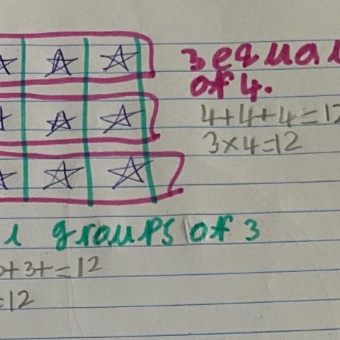 3 equa
of 4.
4+4+4=12
3×4=12
groups of 3
+3+=12
=12